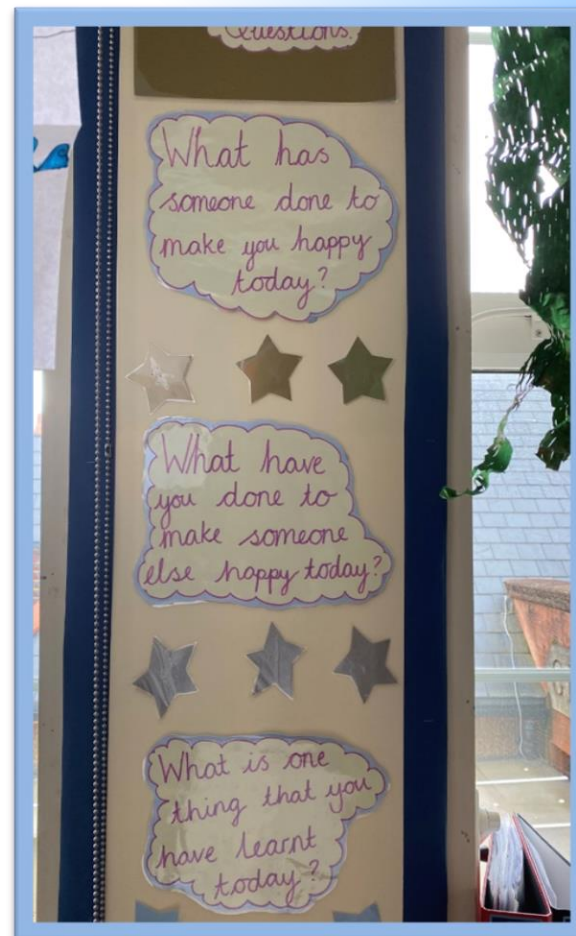 Questions.
What has
someone done to
make you happy
today?
What have
you done to
make someone
else happy today?
What is one
thing that you
have learnt
today?